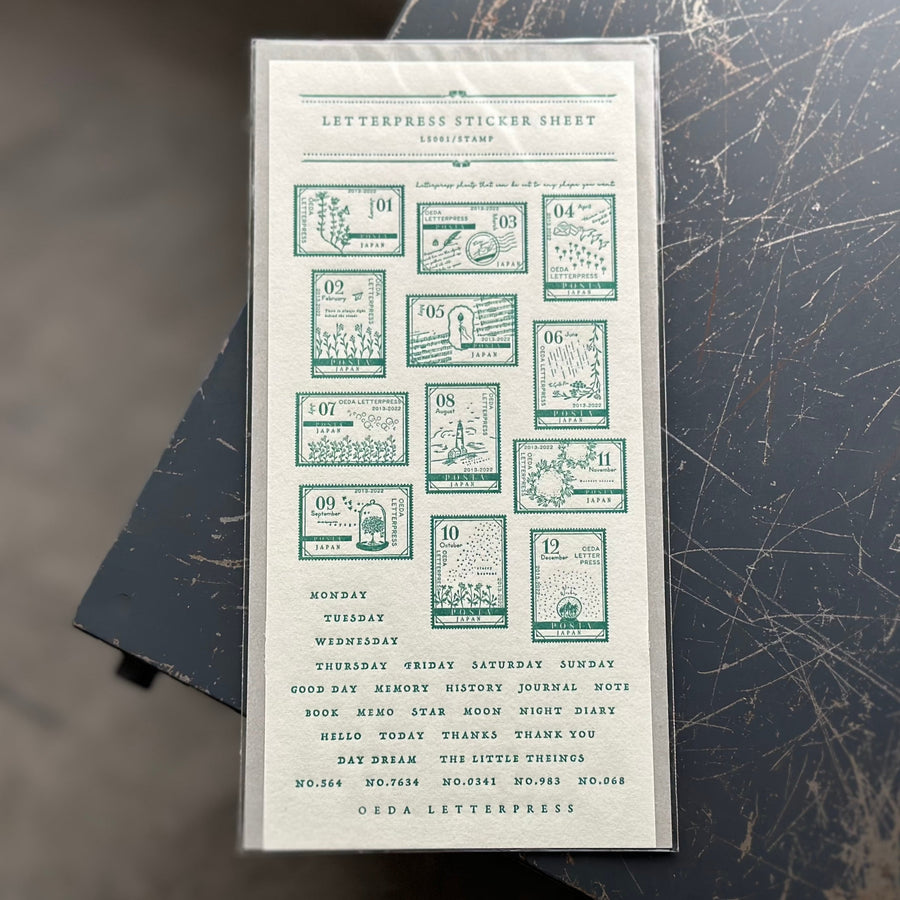 LETTERPRESS STICKER SHEET
LS001/STAMP
Letterpress sheets that can be cut to any shape you want
2013-2022
OEDA
LETTERPRESS
January
01
POSTA
JAPAN
OEDA
LETTERPRESS
2013-2022
03
POSTA
JAPAN
04
April
OEDA
LETTERPRESS
POSTA
JAPAN
02
February
OEDA
LETTERPRESS
2013-2022
There is always light
behind the clouds
POSTA
JAPAN
May
05
2013-2022
POSTA
JAPAN
06
June
OEDA
LETTERPRESS
2013-2022
POSTA
JAPAN
July
07
OEDA LETTERPRESS
2013-2022
POSTA
JAPAN
08
August
OEDA
LETTERPRESS
2013-2022
POSTA
JAPAN
2013-2022
OEDA
LETTERPRESS
11
November
POSTA
JAPAN
2013-2022
09
September
OEDA
LETTERPRESS
POSTA
JAPAN
10
October
OEDA
LETTERPRESS
POSTA
JAPAN
12
December
OEDA
LETTER
PRESS
2013-2022
POSTA
JAPAN
MONDAY
TUESDAY
WEDNESDAY
THURSDAY FRIDAY SATURDAY SUNDAY
GOOD DAY MEMORY HISTORY JOURNAL NOTE
BOOK MEMO STAR MOON NIGHT DIARY
HELLO TODAY THANKS THANK YOU
DAY DREAM THE LITTLE THEINGS
NO.564 NO.7634 NO.0341 NO.983 NO.068
OEDA LETTERPRESS